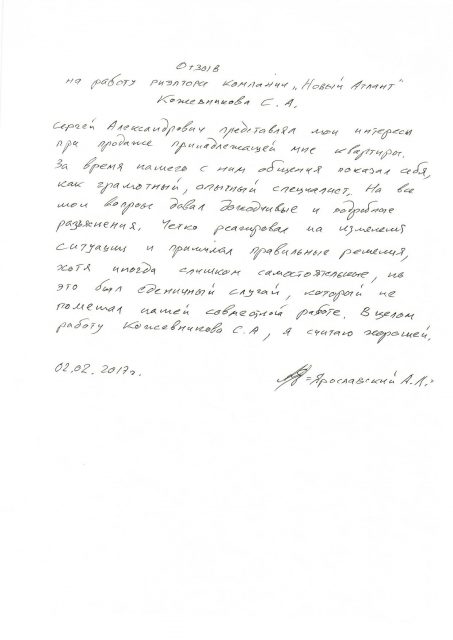 Отзыв
на работу риэлтора компании „Новый Атлант"
Кожевникова С.А.
Сергей Александрович представлял мои интересы
при продаже принадлежащей мне квартиры.
За время нашего с ним общения показал себя,
как грамотный, опытный специалист. На все
мои вопросы давал доходчивые и подробные
разъяснения. Четко реагировал на изменения
ситуации и принимал правильные решения,
хотя иногда слишком самостоятельные, но
это был единичный случай, который не
помешал нашей совместной работе. В целом
работу Кожевникова С.А, я считаю хорошей.
02.02.2017г.
=Ярославский А.Л.=